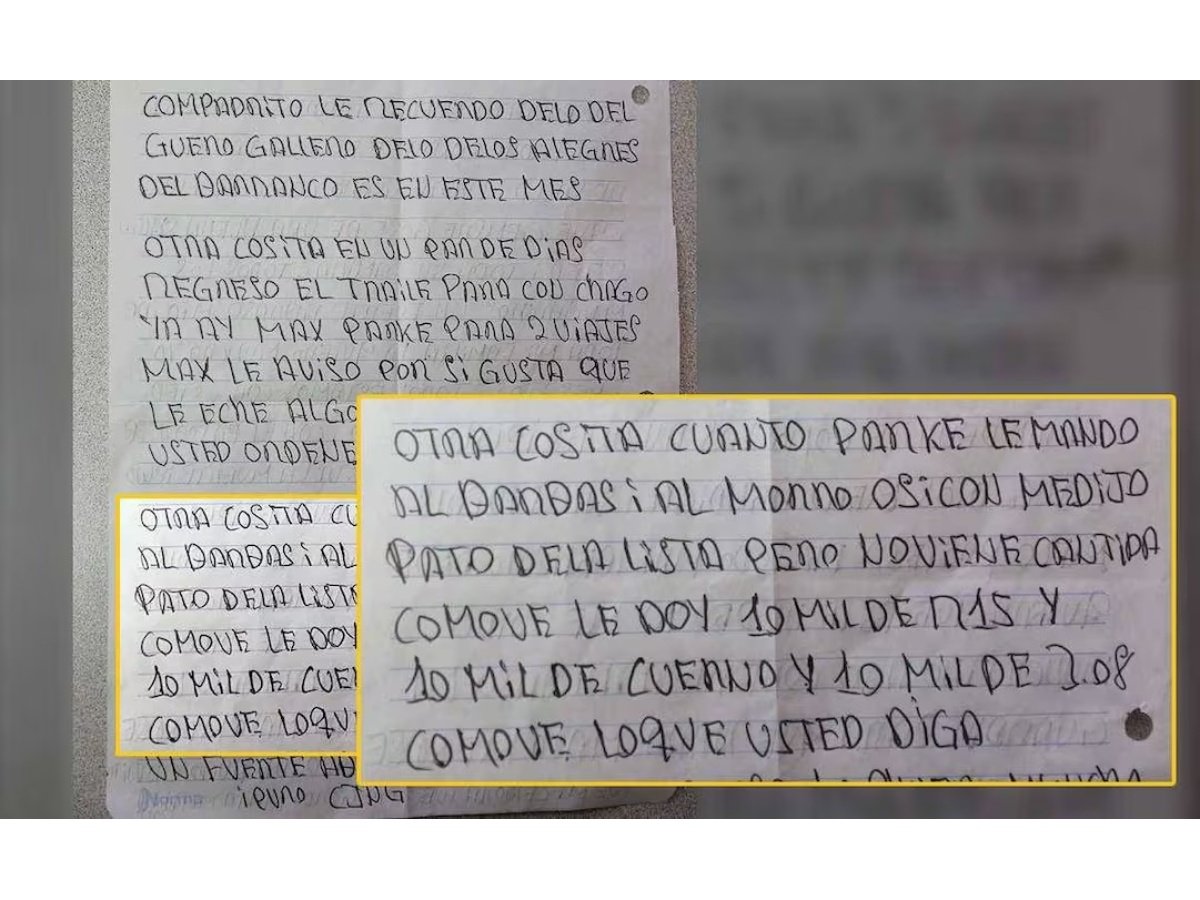 COMPADRITO LE RECUERDO DELO DEL
GUERO GALLERO DELO DELOS ALEGRES
DEL BARRANCO ES EN ESTE MES
OTRA COSITA EN UN PAR DE DIAS
REGRESO EL TRAILE PARA CON CHAGO
YA AY MAX PARKE PARA 2 VIAJES
MAX LE AVISO POR SI GUSTA QUE
LE ECHE ALGO
USTED ORDENE
OTRA COSITA CU
AL BARBAS i AL
PATO DELA LISTA
COMOVE LE DOY
10 MIL DE CUER
COMOVE LOQUE
UN FUERTE AB
iPURO CJNG
Norma
OTRA COSITA CUANTO PARKE LE MANDO
AL BARBAS i AL MORRO OSICON MEDIJO
PATO DELA LISTA PERO NOVIENE CANTIDA
COMOVE LE DOY 10 MIL DE R15 Y
10 MIL DE CUERNO Y 10 MIL DE 3.08
COMOVE LOQUE USTED DIGA